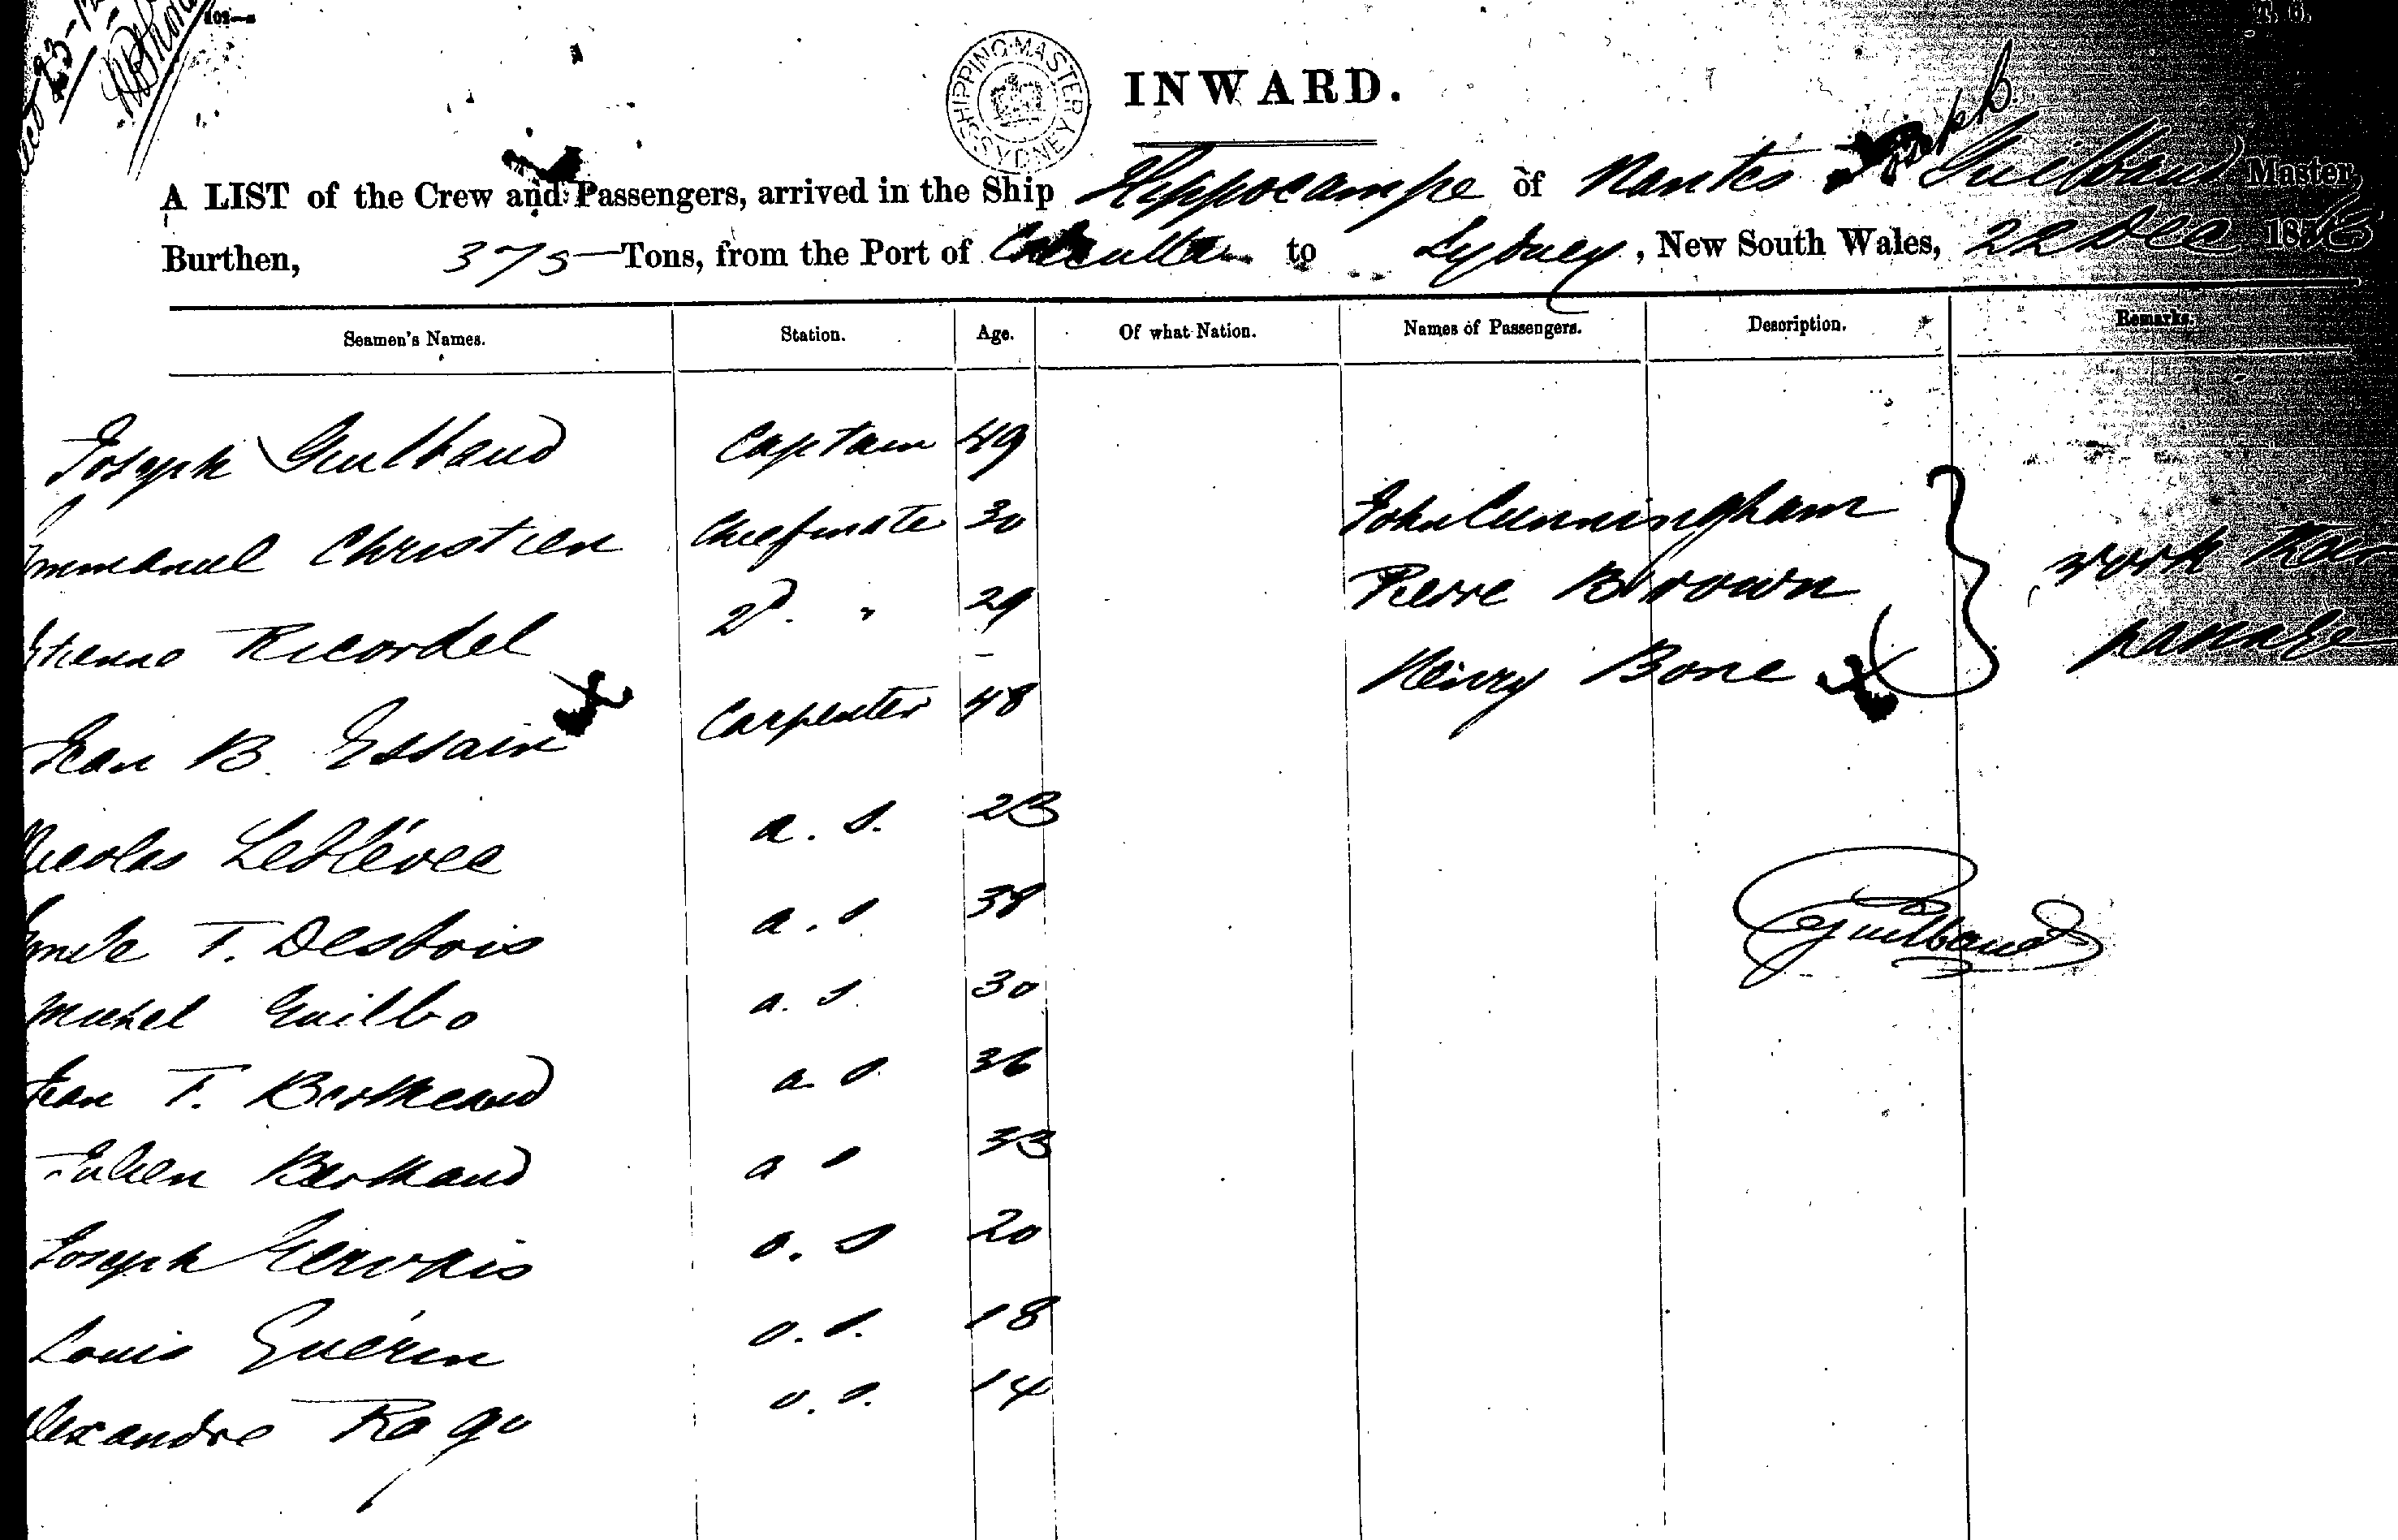 102—a
T. 6.
SHIPPING MASTER SYDNEY
INWARD.
A LIST of the Crew and Passengers, arrived in the Ship Hippocampe of Nantes Joseph Guilbaud Master,
Burthen, 375 Tons, from the Port of Calcutta to Sydney, New South Wales, 22 Dec 187
Seamen's Names. Station. Age. Of what Nation. Names of Passengers. Description. Remarks.
Joseph Guilbaud Captain 49
Emmanuel Christien Chief mate 30 John Cunningham
Etienne Ricordel 2d. " 29 Pierre Brown work their
Jean B. Essain Carpenter 48 Henry Bone passage
Nicolas a. s. 23
Emile T. Desbois a. s. 38
Michel Guilbo a. s. 30
Jean T. Bertheaud a s. 36
Julien Berthaud a s 33
Joseph Gervais o. s 20
Louis Guérin o. s. 18
Alexandre Rago o. s. 14
Guilbaud